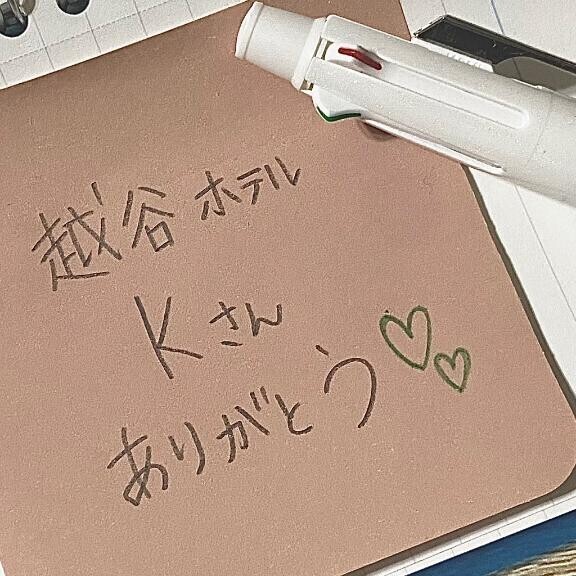 越谷 ホテル
Kさん
ありがとう♡♡